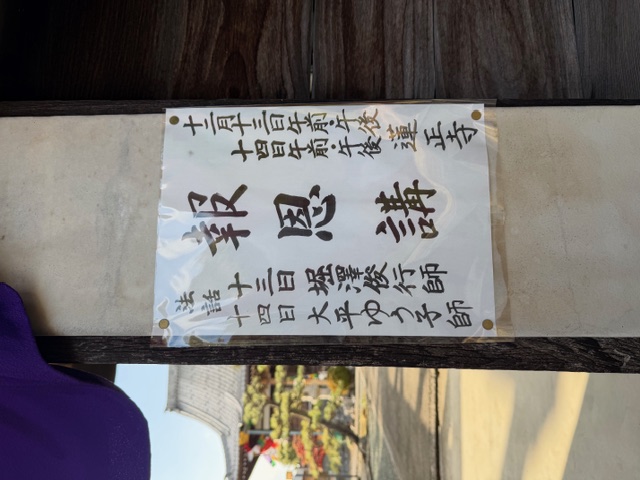 十二月十三日午前・午後
十四日午前・午後
蓮正寺
報恩講
法話
十三日 堀澤俊行師
十四日 大平ゆう子師